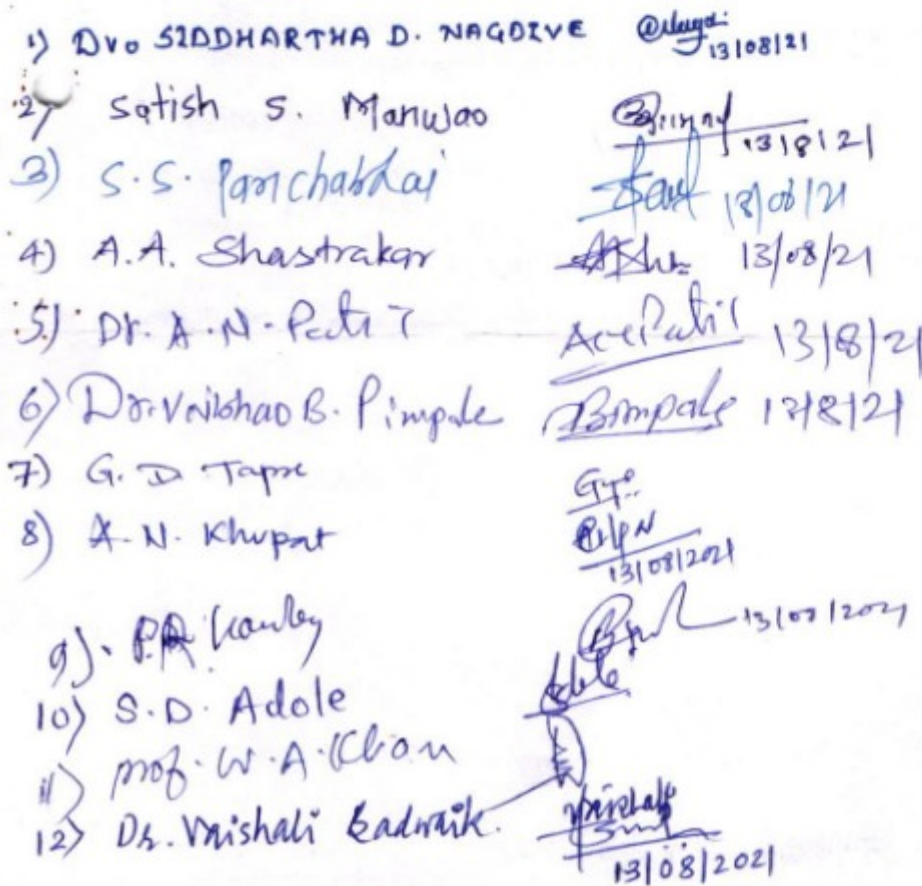 1) Dr. SIDDHARTHA D. NAGDIVE 13/08/21
2) Satish S. Manwjao 13/8/21
3) S.S. Panchabhai 13/08/21
4) A.A. Shastrakar 13/08/21
5) Dr. A.N. Patil 13/8/21
6) Dr. Vaibhao B. Pimpale 13/8/21
7) G. D. Tapre
8) A.N. Khupat
13/08/2021
9) 13/08/2021
10) S.D. Adole
11) prof. W.A. Khan
12) Dr. Vaishali Badwaik. Vaishali
13/08/2021